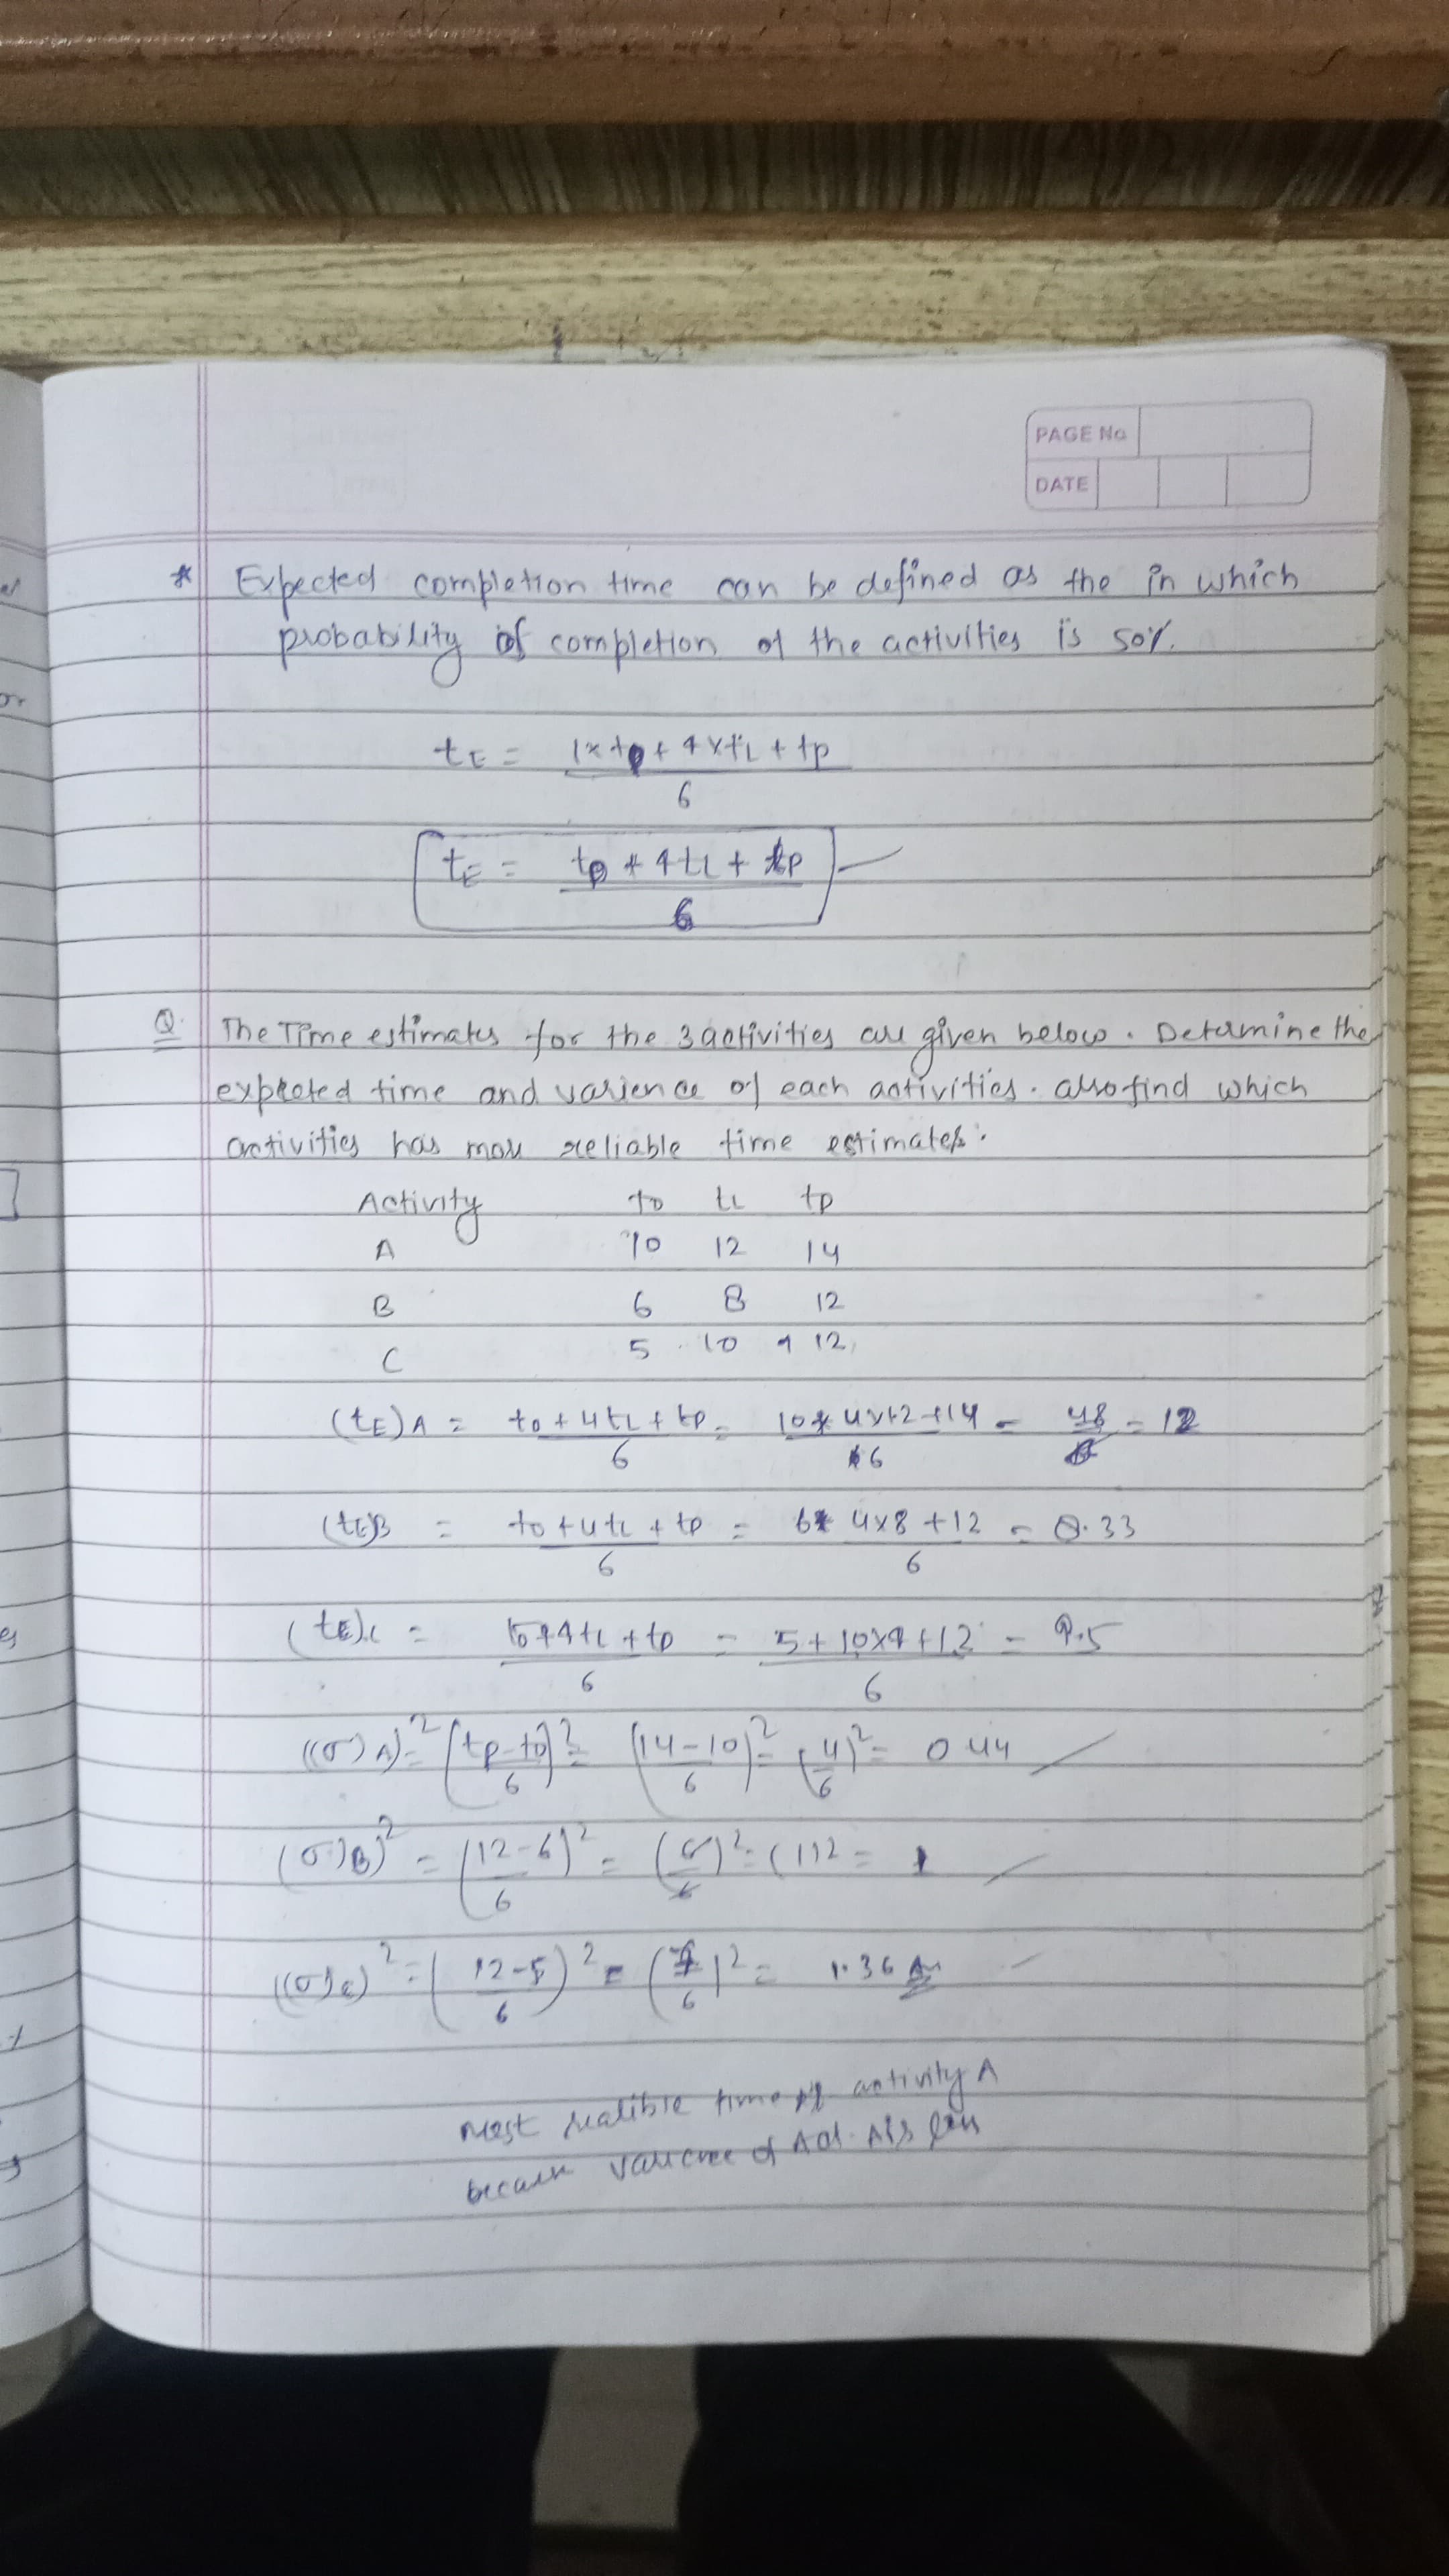 PAGE No
DATE
* Expected completion time can be defined as the in which
probability of completion of the activities is 50%.
tE = 1×to + 4×tL + tp
6
tE = to + 4tL + tp
6
Q. The Time estimates for the 3 activities are given below. Determine the
expected time and varience of each activities. also find which
activities has more reliable time estimates.
Activity to tL tp
A 10 12 14
B 6 8 12
C 5 10 12
(tE)A = to + 4tL + tp = 10 + 4×12 + 14 = 48 = 12
6 6
(tE)B = to + 4tL + tp = 6 + 4×8 + 12 = 8.33
6 6
(tE)C = to + 4tL + tp = 5 + 10×4 + 12 = 9.5
6 6
((σ)A)² = (tp - to)² = (14 - 10)² = (4)² = 0.44
6 6 6
((σ)B)² = (12 - 6)² = (6)² = (1)2 = 1
6 6
((σ)C)² = (12 - 5)² = (7)² = 1.36 Ans
6 6
most realible time of activity A
because varience of Act. A is less